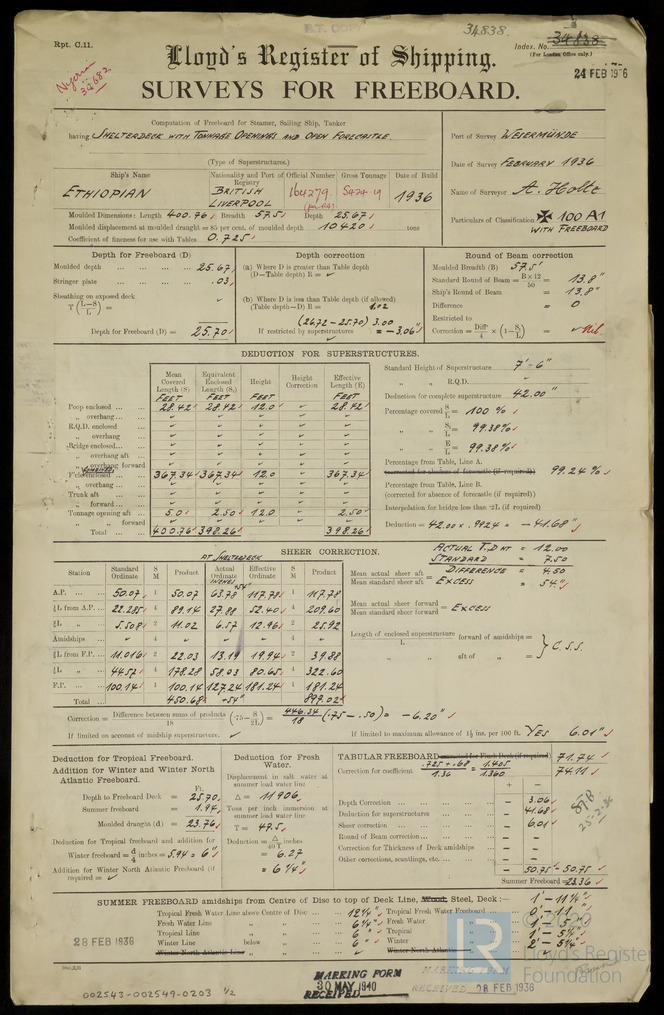 Rpt. C.11.
B.T. COPY
34838.
Index. No. 34838
(For London Office only.)
24 FEB 1936
Nigeria
34682
Lloyd's Register of Shipping.
SURVEYS FOR FREEBOARD.
Computation of Freeboard for Steamer, Sailing Ship, Tanker
having SHELTERDECK WITH TONNAGE OPENINGS AND OPEN FORECASTLE
(Type of Superstructures.)
Port of Survey WESERMÜNDE
Date of Survey FEBRUARY 1936
Name of Surveyor A. Holte
Particulars of Classification ✠ 100 A1
WITH FREEBOARD
Ship's Name
Nationality and Port of Registry
Official Number
Gross Tonnage
Date of Build
ETHIOPIAN
BRITISH
LIVERPOOL
164279
5424.19
1936
Moulded Dimensions: Length 400.76 Breadth 57.5 Depth 25.67
Moulded displacement at moulded draught = 85 per cent. of moulded depth 10420 tons
Coefficient of fineness for use with Tables 0.725
Depth for Freeboard (D)
Moulded depth 25.67
Stringer plate .03
Sheathing on exposed deck
T (L-S / L) =
Depth for Freeboard (D) = 25.70
Depth correction
(a) Where D is greater than Table depth
(D−Table depth) R =
(b) Where D is less than Table depth (if allowed)
(Table depth−D) R = 1.02
(26.72 - 25.70) 3.00
If restricted by superstructures = -3.06"
Round of Beam correction
Moulded Breadth (B) 57.5'
Standard Round of Beam = B×12 / 50 = 13.8"
Ship's Round of Beam = 13.8"
Difference = 0
Restricted to
Correction = Diff / 4 × (1 − S1 / L) = Nil
DEDUCTION FOR SUPERSTRUCTURES.
Mean Covered Length (S) FEET
Equivalent Enclosed Length (S1) FEET
Height FEET
Height Correction
Effective Length (E) FEET
Poop enclosed 28.42 28.42 12.0 28.42
" overhang
R.Q.D. enclosed
" overhang
Bridge enclosed
" overhang aft
" overhang forward
F'cle enclosed 367.34 367.34 12.0 367.34
" overhang
Trunk aft
" forward
Tonnage opening aft 5.0 2.50 12.0 2.50
" " forward
Total 400.76 398.26 398.26
Standard Height of Superstructure 7'-6"
" " R.Q.D.
Deduction for complete superstructure 42.00"
Percentage covered S / L = 100 %
" " S1 / L = 99.38%
" " E / L = 99.38%
Percentage from Table, Line A.
corrected for absence of forecastle (if required) 99.24 %
Percentage from Table, Line B.
(corrected for absence of forecastle (if required))
Interpolation for bridge less than ·2L (if required)
Deduction = 42.00 x .9924 = -41.68"
AT SHELTERDECK
SHEER CORRECTION.
Station
Standard Ordinate
S M
Product
Actual Ordinate INCHES
Effective Ordinate +54"
S M
Product
A.P. 50.07 1 50.07 63.78 117.78 1 117.78
⅙L from A.P. 22.285 4 89.14 27.88 52.40 4 209.60
⅓L " 5.508 2 11.02 6.57 12.96 2 25.92
Amidships 4 4
⅓L from F.P. 11.016 2 22.03 13.19 19.94 2 39.88
⅙L " 44.57 4 178.28 58.03 80.65 4 322.60
F.P. 100.14 1 100.14 127.24 181.24 1 181.24
Total 450.68 +54" 897.02
ACTUAL T.D HT = 12.00
STANDARD = 7.50
DIFFERENCE = 4.50
Mean actual sheer aft / Mean standard sheer aft = EXCESS = 54."
Mean actual sheer forward / Mean standard sheer forward = EXCESS
Length of enclosed superstructure / L forward of amidships =
" " aft of " =
} C.S.S.
Correction = Difference between sums of products / 18 (·75 − S / 2L) = 446.34 / 18 (.75 - .50) = -6.20"
If limited on account of midship superstructure.
If limited to maximum allowance of 1½ ins. per 100 ft. YES 6.01"
Deduction for Tropical Freeboard.
Addition for Winter and Winter North Atlantic Freeboard.
Ft.
Depth to Freeboard Deck = 25.70
Summer freeboard = 1.94
Moulded draught (d) = 23.76
Deduction for Tropical freeboard and addition for
Winter freeboard = d / 4 inches = 5.94 = 6"
Addition for Winter North Atlantic Freeboard (if required) =
Deduction for Fresh Water.
Displacement in salt water at summer load water line
Δ = 11906
Tons per inch immersion at summer load water line
T = 47.5
Deduction = Δ / 40T inches
= 6.27
= 6¼"
TABULAR FREEBOARD corrected for Flush Deck (if required) 71.74
Correction for coefficient .725 + .68 / 1.36 = 1.405 / 1.360 74.11
+ −
Depth Correction 3.06
Deduction for superstructures 41.68
Sheer correction 6.01
Round of Beam correction
Correction for Thickness of Deck amidships
Other corrections, scantlings, etc.
50.75 - 50.75
Summer Freeboard = 23.36
25-2-36
SUMMER FREEBOARD amidships from Centre of Disc to top of Deck Line, Wood, Steel, Deck:— 1' - 11¼"
Tropical Fresh Water Line above Centre of Disc 12¼" Tropical Fresh Water Freeboard 0' - 11"
Fresh Water Line " " 6¼" Fresh Water " 1' - 5"
Tropical Line " " 6" Tropical " 1' - 5¼"
Winter Line below " 6" Winter " 2' - 5¼"
Winter North Atlantic Line " " Winter North Atlantic "
28 FEB 1936
002543-002549-0203 1/2
MARKING FORM
30 MAY 1940
RECEIVED
MARKING FORM
RECEIVED 28 FEB 1936
LR
© 2020
Lloyd's Register
Foundation